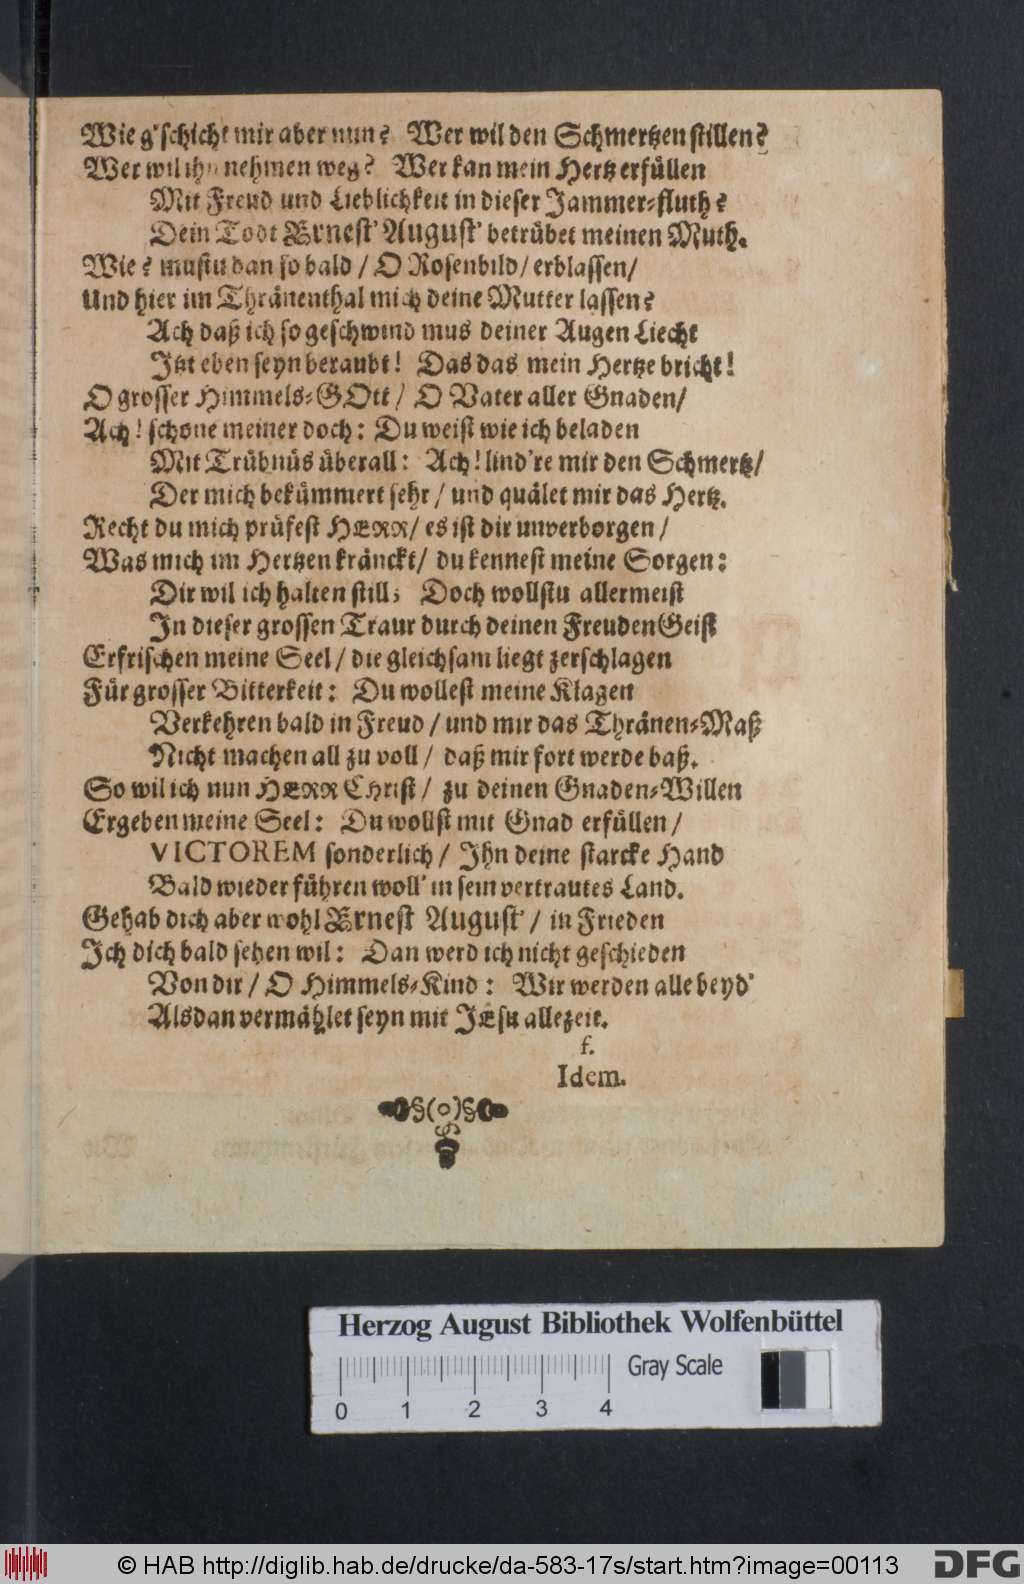 Wie g'schicht mir aber nun? Wer wil den Schmertzen stillen?
Wer wil ihn nehmen weg? Wer kan mein Hertz erfüllen
Mit Freud und Lieblichkeit in dieser Jammer-fluth?
Dein Todt Ernest' August' betrübet meinen Muth.
Wie? mustu dan so bald / O Rosenbild / erblassen /
Und hier im Thränenthal mich deine Mutter lassen?
Ach daß ich so geschwind mus deiner Augen Liecht
Itzt eben seyn beraubt! Das das mein Hertze bricht!
O grosser Himmels-GOtt / O Vater aller Gnaden /
Ach! schone meiner doch: Du weist wie ich beladen
Mit Trübnüs überall: Ach! lind're mir den Schmertz /
Der mich bekümmert sehr / und quälet mir das Hertz.
Recht du mich prüfest HERR / es ist dir unverborgen /
Was mich im Hertzen kränckt / du kennest meine Sorgen:
Dir wil ich halten still; Doch wollstu allermeist
In dieser grossen Traur durch deinen FreudenGeist
Erfrischen meine Seel / die gleichsam liegt zerschlagen
Für grosser Bitterkeit: Du wollest meine Klagen
Verkehren bald in Freud / und mir das Thränen-Maß
Nicht machen all zu voll / daß mir fort werde baß.
So wil ich nun HERR CHrist / zu deinen Gnaden-Willen
Ergeben meine Seel: Du wollst mit Gnad erfüllen /
VICTOREM sonderlich / Ihn deine starcke Hand
Bald wieder führen woll' in sein vertrautes Land.
Gehab dich aber wohl Ernest August' / in Frieden
Ich dich bald sehen wil: Dan werd ich nicht geschieden
Von dir / O Himmels-Kind: Wir werden alle beyd'
Alsdan vermählet seyn mit JEsu allezeit.
f.
Idem.
Herzog August Bibliothek Wolfenbüttel
Gray Scale
0 1 2 3 4
© HAB http://diglib.hab.de/drucke/da-583-17s/start.htm?image=00113
DFG